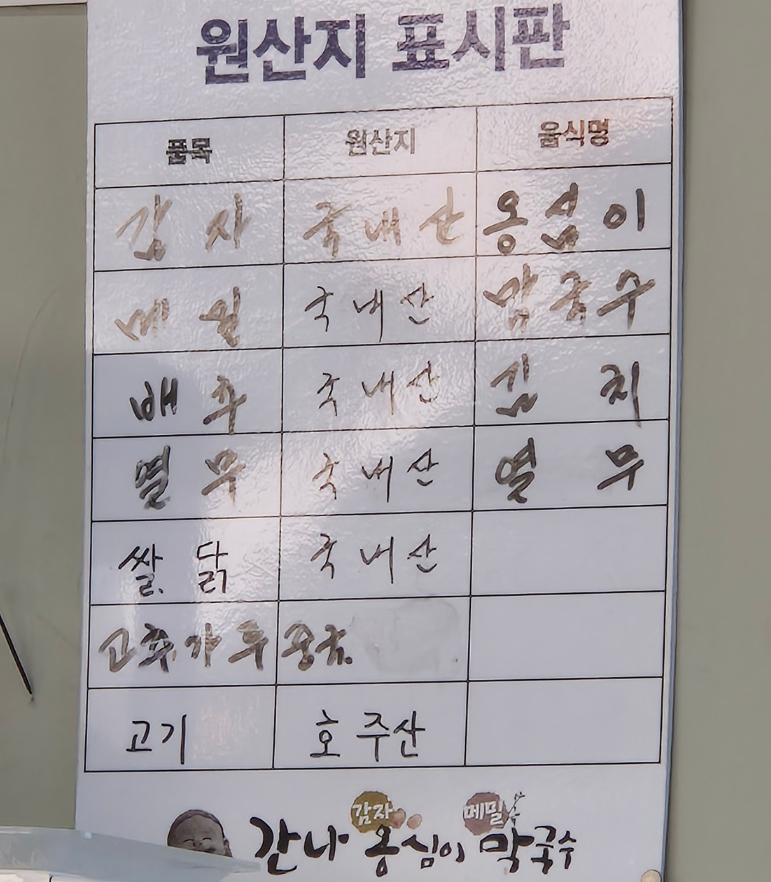 원산지 표시판
품목 원산지 음식명
감자 국내산 옹심이
메밀 국내산 막국수
배추 국내산 김치
열무 국내산 열무
쌀. 닭 국내산
고추가루 중국.
고기 호주산
감자 메밀
간나 옹심이 막국수